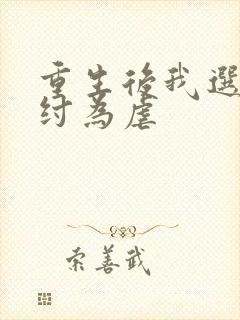 重生後我選
紂為虐
索善武